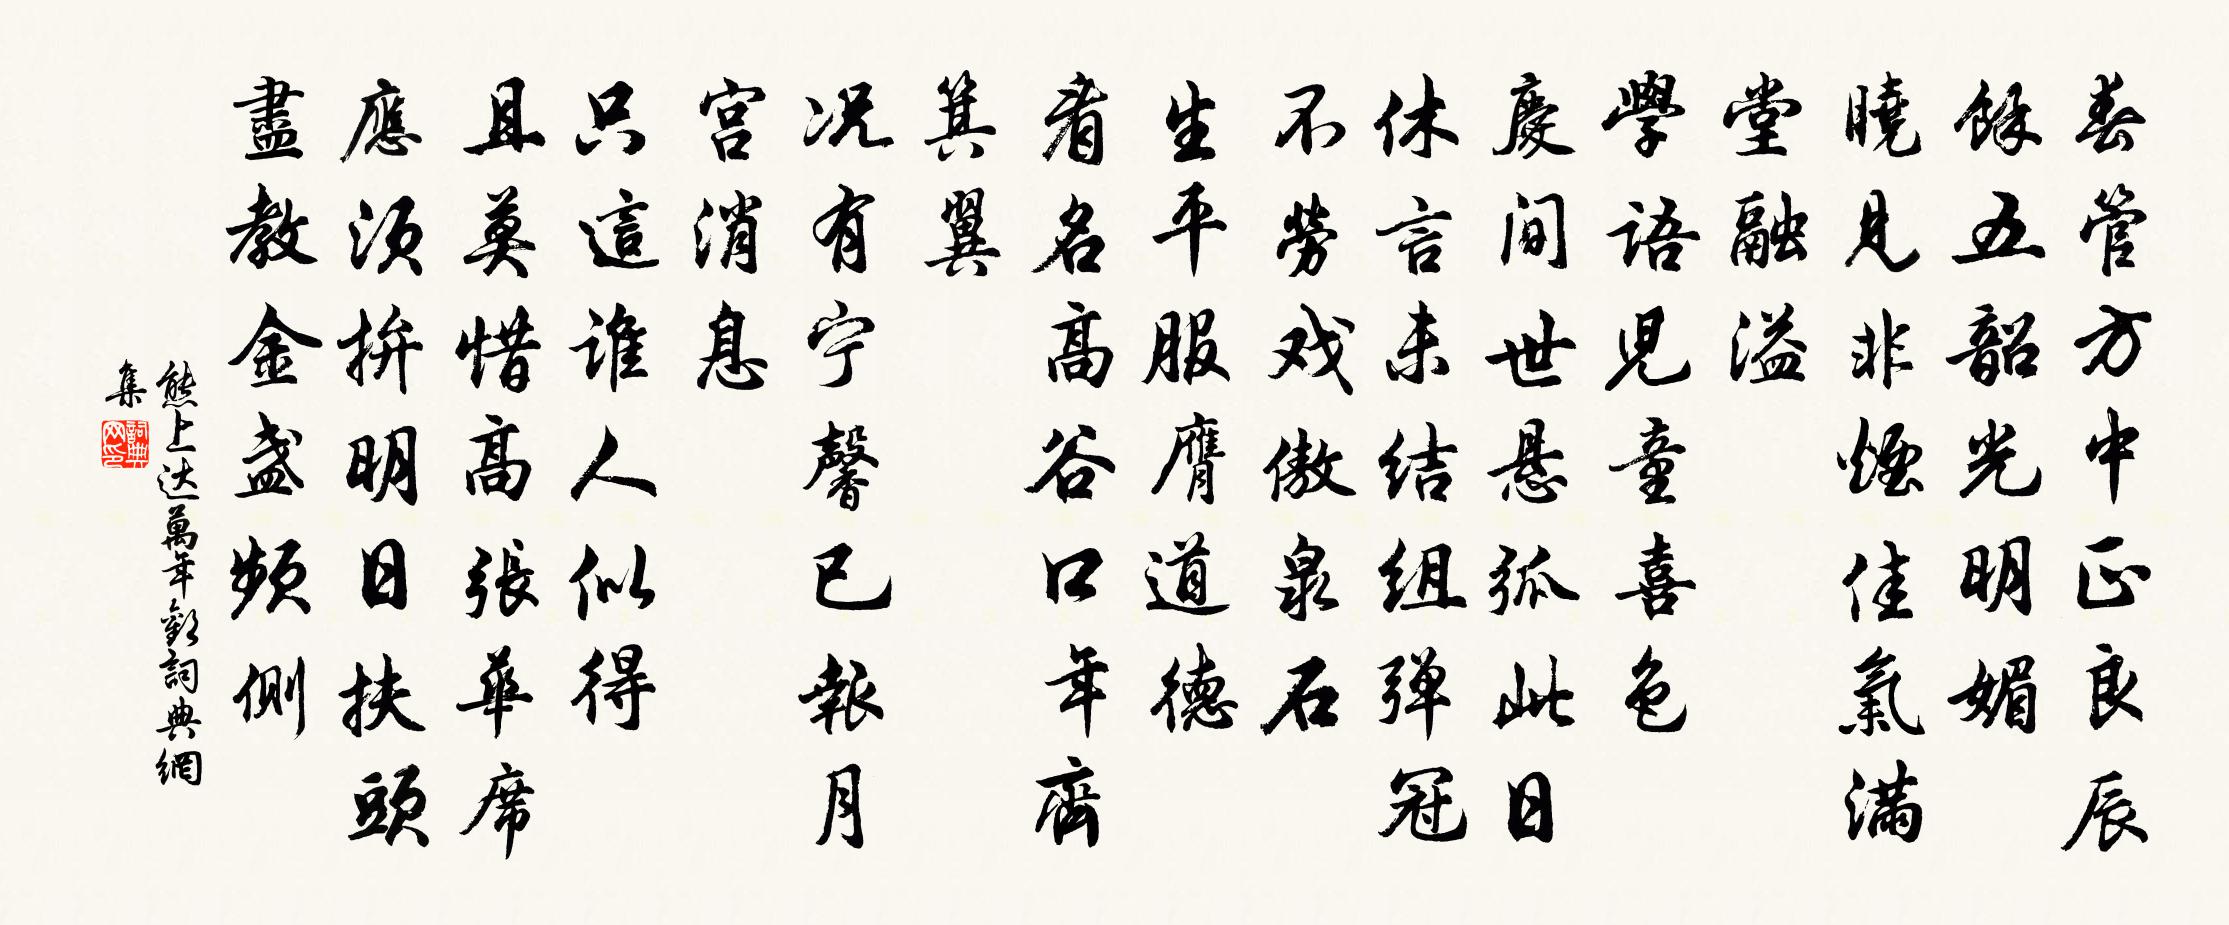 春管方中正良辰
餘五韶光明媚
曉見非煙佳氣滿
堂融溢
學語児童喜色
慶间世悬弧此日
休言未结组弹冠
不勞戏傲泉石
生平服膺道德
看名高谷口年齊
箕翼
况有宁馨已報月
宫消息
只這谁人似得
且莫惜高張華席
應须拚明日扶頭
盡教金盏频側
熊上达萬年歡詞典網
集
詞典网印